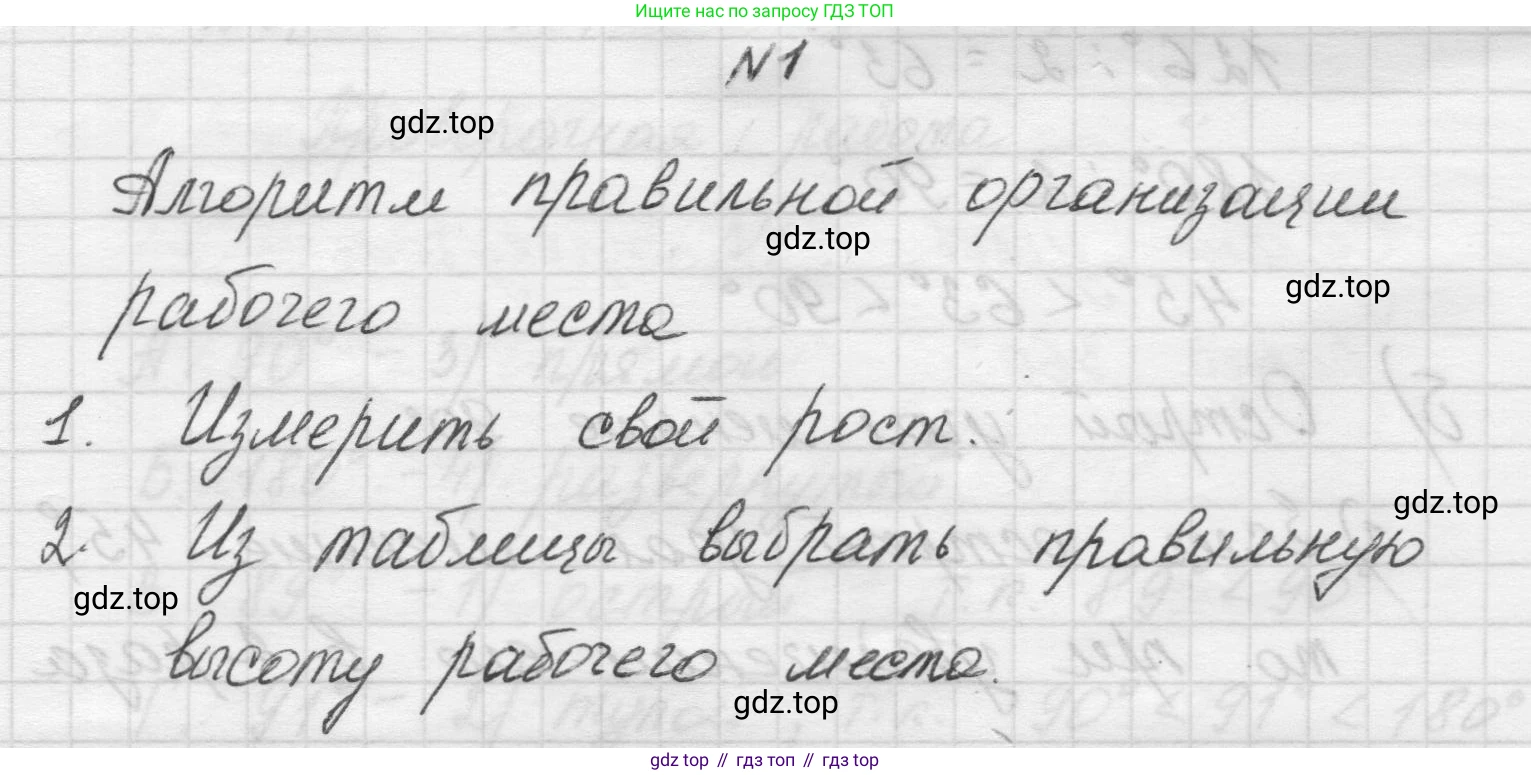 Ищите нас по запросу ГДЗ ТОП
N1
gdz.top
Алгоритм правильной организации
gdz.top
gdz.top
рабочего места
1. Измерить свой рост.
gdz.top
2. Из таблицы выбрать правильную
gdz.top
высоту рабочего места.
gdz.top
gdz top // гдз топ // гдз top